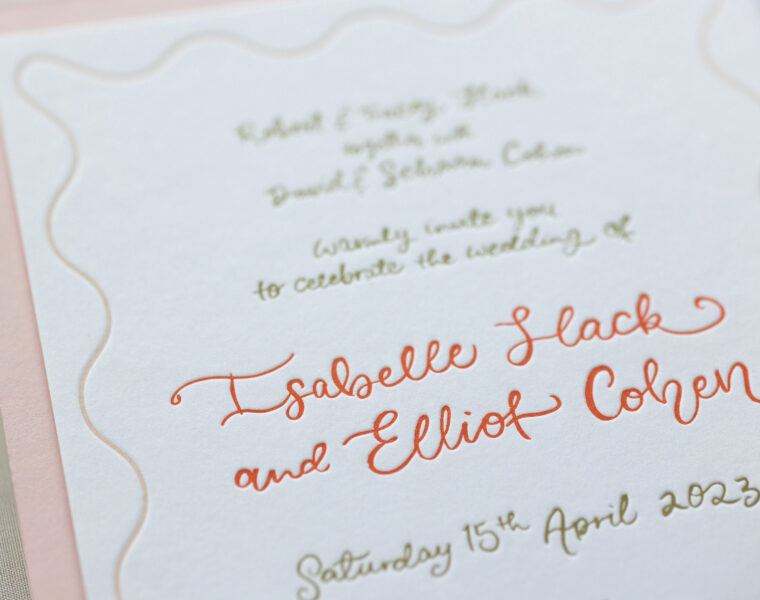 Robert &
together with
David & Cohen
warmly invite you
to celebrate the wedding of
Isabelle Slack
and Elliot Cohen
Saturday 15th April 2023